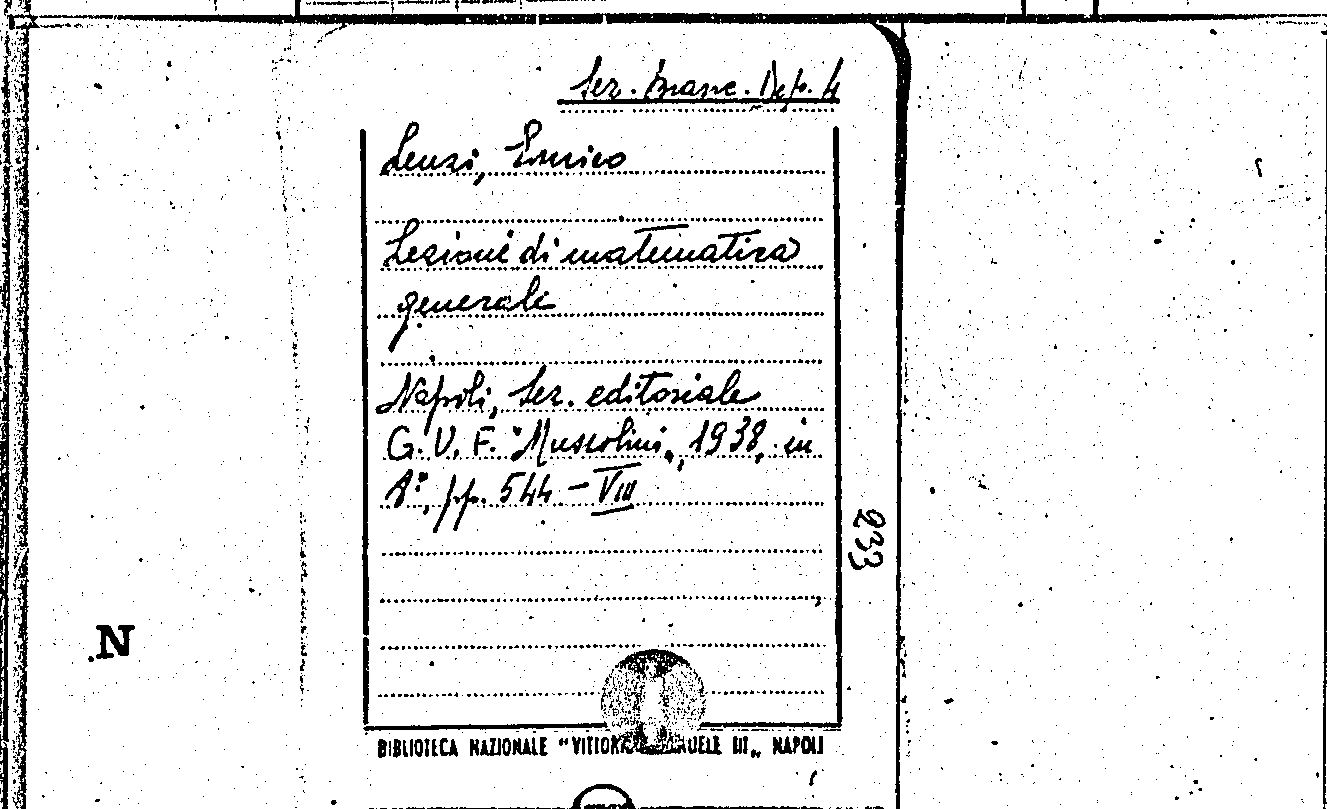 Sez. Branc. Dep. 4
Lenzi, Enrico
Lezioni di matematica
generale
Napoli, Sez. editoriale
G. U. F. "Mussolini„, 1938, in
8°, pp. 544 – VIII
233
N
BIBLIOTECA NAZIONALE "VITTORIO EMANUELE III„ NAPOLI